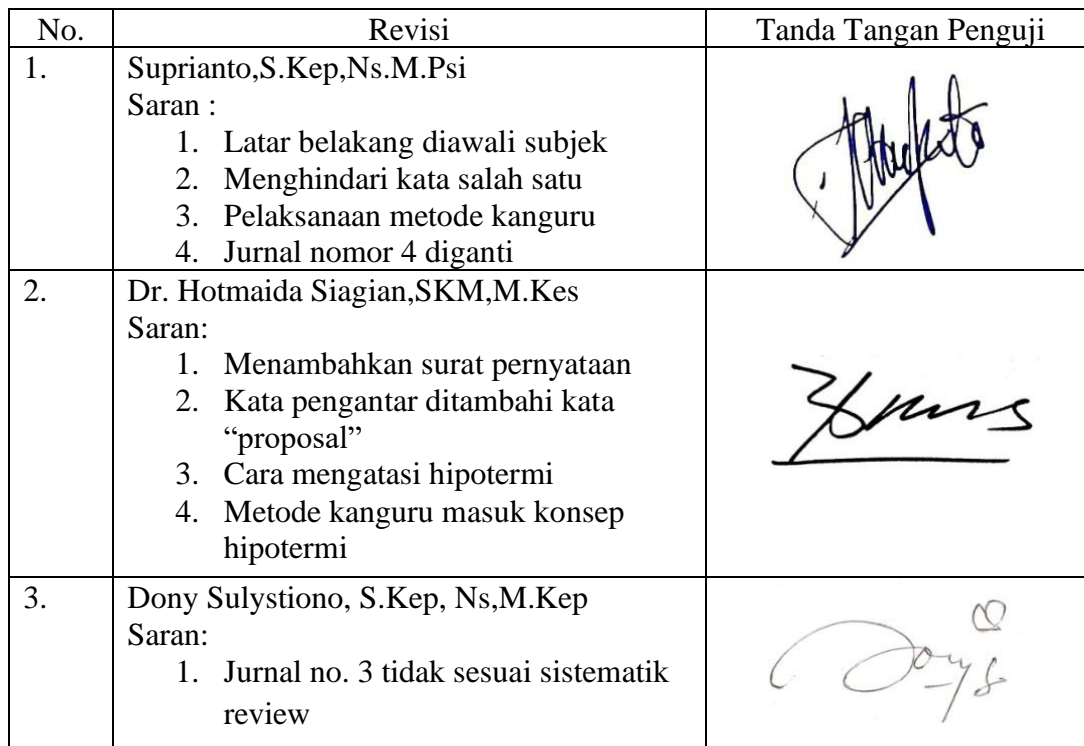 No. Revisi Tanda Tangan Penguji
1. Suprianto,S.Kep,Ns.M.Psi
Saran :
1. Latar belakang diawali subjek
2. Menghindari kata salah satu
3. Pelaksanaan metode kanguru
4. Jurnal nomor 4 diganti
2. Dr. Hotmaida Siagian,SKM,M.Kes
Saran:
1. Menambahkan surat pernyataan
2. Kata pengantar ditambahi kata
“proposal”
3. Cara mengatasi hipotermi
4. Metode kanguru masuk konsep
hipotermi
3. Dony Sulystiono, S.Kep, Ns,M.Kep
Saran:
1. Jurnal no. 3 tidak sesuai sistematik
review